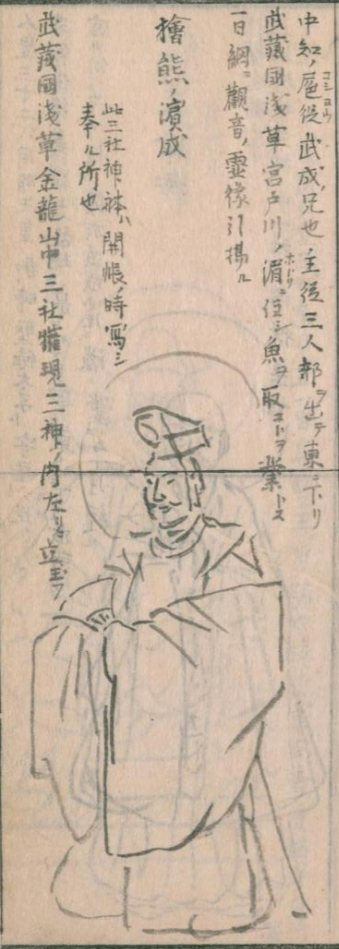 中知ノ扈従コシヨウ武成ノ兄也 主従三人都ヲ出テ東ニ下リ
武蔵国浅草宮戸川ノ湄ホトリニ住シ魚ヲ取コトヲ業トス
一日網ニ観音ノ霊像引揚ル
檜熊ノ濱成
此三社神躰ハ開帳ノ時写シ
奉ル所也
武蔵国浅草金龍山中三社権現三神ノ内左リニ立玉フ